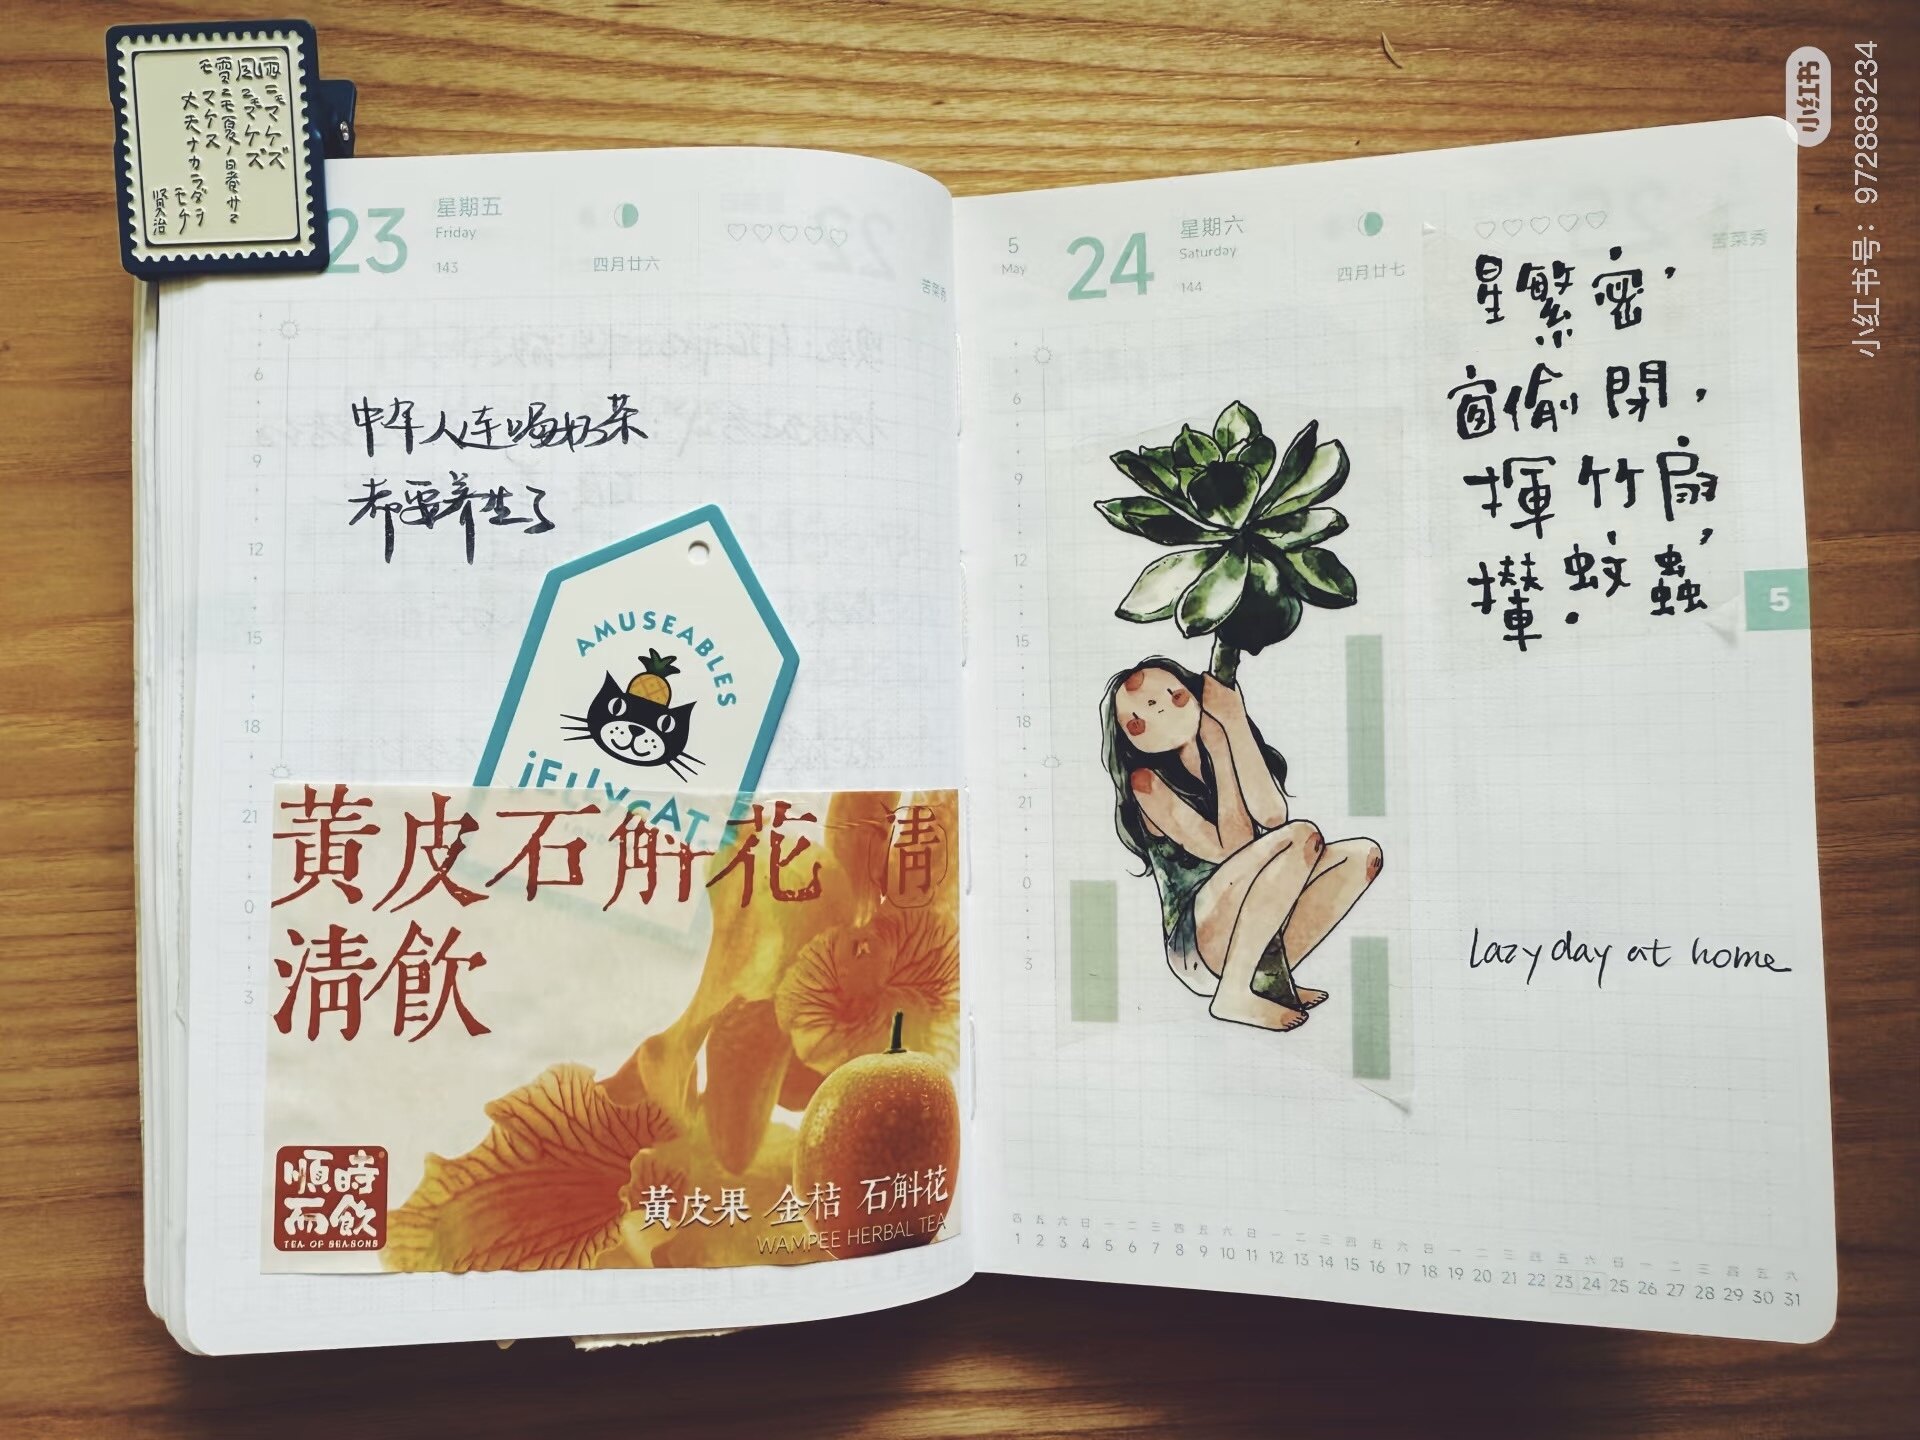 雨ニモマケズ
風ニモマケズ
雪ニモ夏ノ暑サニ
モマケヌ
丈夫ナカラダヲ
モチ
賢治
23
星期五
Friday
143
四月廿六
苦菜秀
6
9
12
15
18
21
0
3
中年人连喝奶茶
都要养生了
AMUSEABLES
JELLYCAT
黃皮石斛花 清
清飲
順時
而飲
TEA OF SEASONS
黃皮果 金桔 石斛花
WAMPEE HERBAL TEA
5
May
24
星期六
Saturday
144
四月廿七
苦菜秀
6
9
12
15
18
21
0
3
星繁密,
窗偷閉,
揮竹扇,
攆蚊蟲.
5
lazy day at home
四 五 六 日 一 二 三 四 五 六 日 一 二 三 四 五 六 日 一 二 三 四 五 六 日 一 二 三 四 五 六
1 2 3 4 5 6 7 8 9 10 11 12 13 14 15 16 17 18 19 20 21 22 23 24 25 26 27 28 29 30 31
小红书
小红书号: 9728883234